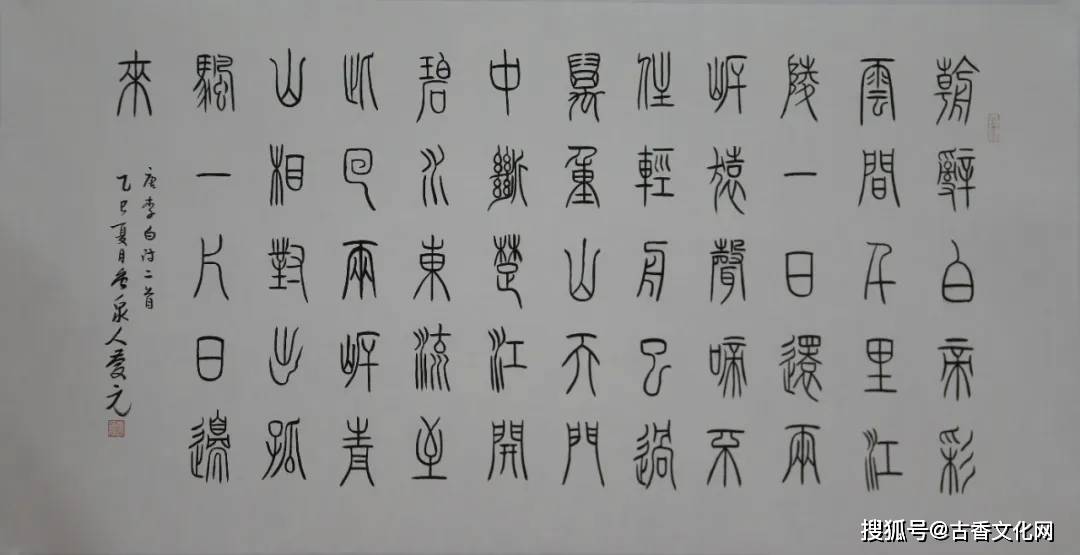 朝辭白帝彩
雲間千里江
陵一日還兩
岸猿聲啼不
住輕舟已過
萬重山天門
中斷楚江開
碧水東流至
此回兩岸青
山相對出孤
帆一片日邊
來
唐李白诗二首
乙巳夏月泉人爱元
搜狐号@古香文化网